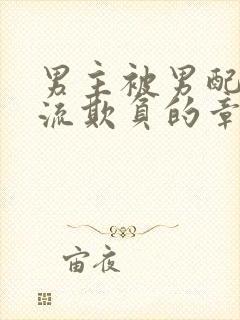 男主被男配
流欺负的章
宙夜